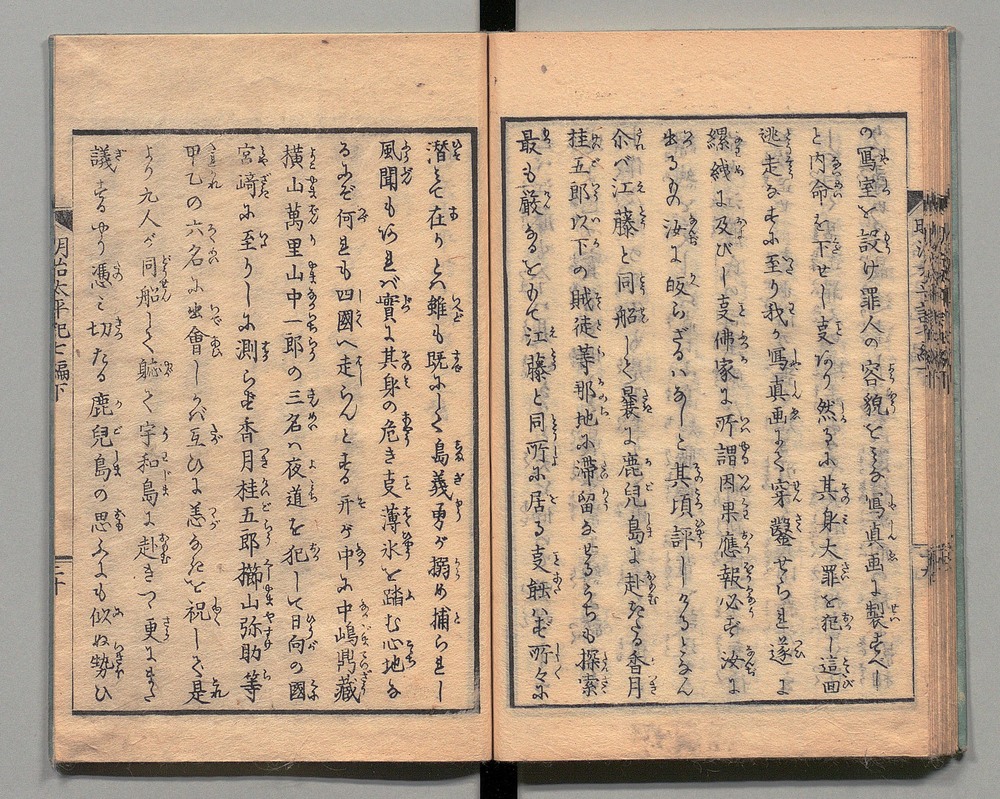 の寫室を設け罪人の容貌をみな寫真画に製すべし
と内命を下せし叓あり然るに其身大罪を犯し這回
逃走なすに至り我が寫真画にて穿鑿せられ遂に
縲絏に及びし叓佛家に所謂因果應報必ず汝に
出るもの汝に皈らざるハなしと其頃評しけるとなん
尒ベ江藤と同船して曩に鹿児島に赴きたる香月
桂五郎以下の賊徒等那地に滞留なせるうちも探索
最も嚴なるをもて江藤と同所に居る叓能はず所々に
潜みて在りとハ雖も既にして島義勇が搦め捕られし
風聞もあれバ實に其身の危き叓薄氷を踏む心地な
るにぞ何れも四國へ走らんとする开が中に中嶋鼎藏
横山萬里山中一郎の三名ハ夜道を犯して日向の國
宮﨑に至りしに測らず香月桂五郎櫛山弥助等
甲乙の六名に出會しかバ互ひに恙なきを祝しこを是
より九人が同船して軈て宇和島に赴きつゝ更にまた
議するやう憑み切たる鹿児島の思ふにも似ぬ勢ひ
明治太平記七編下
二十